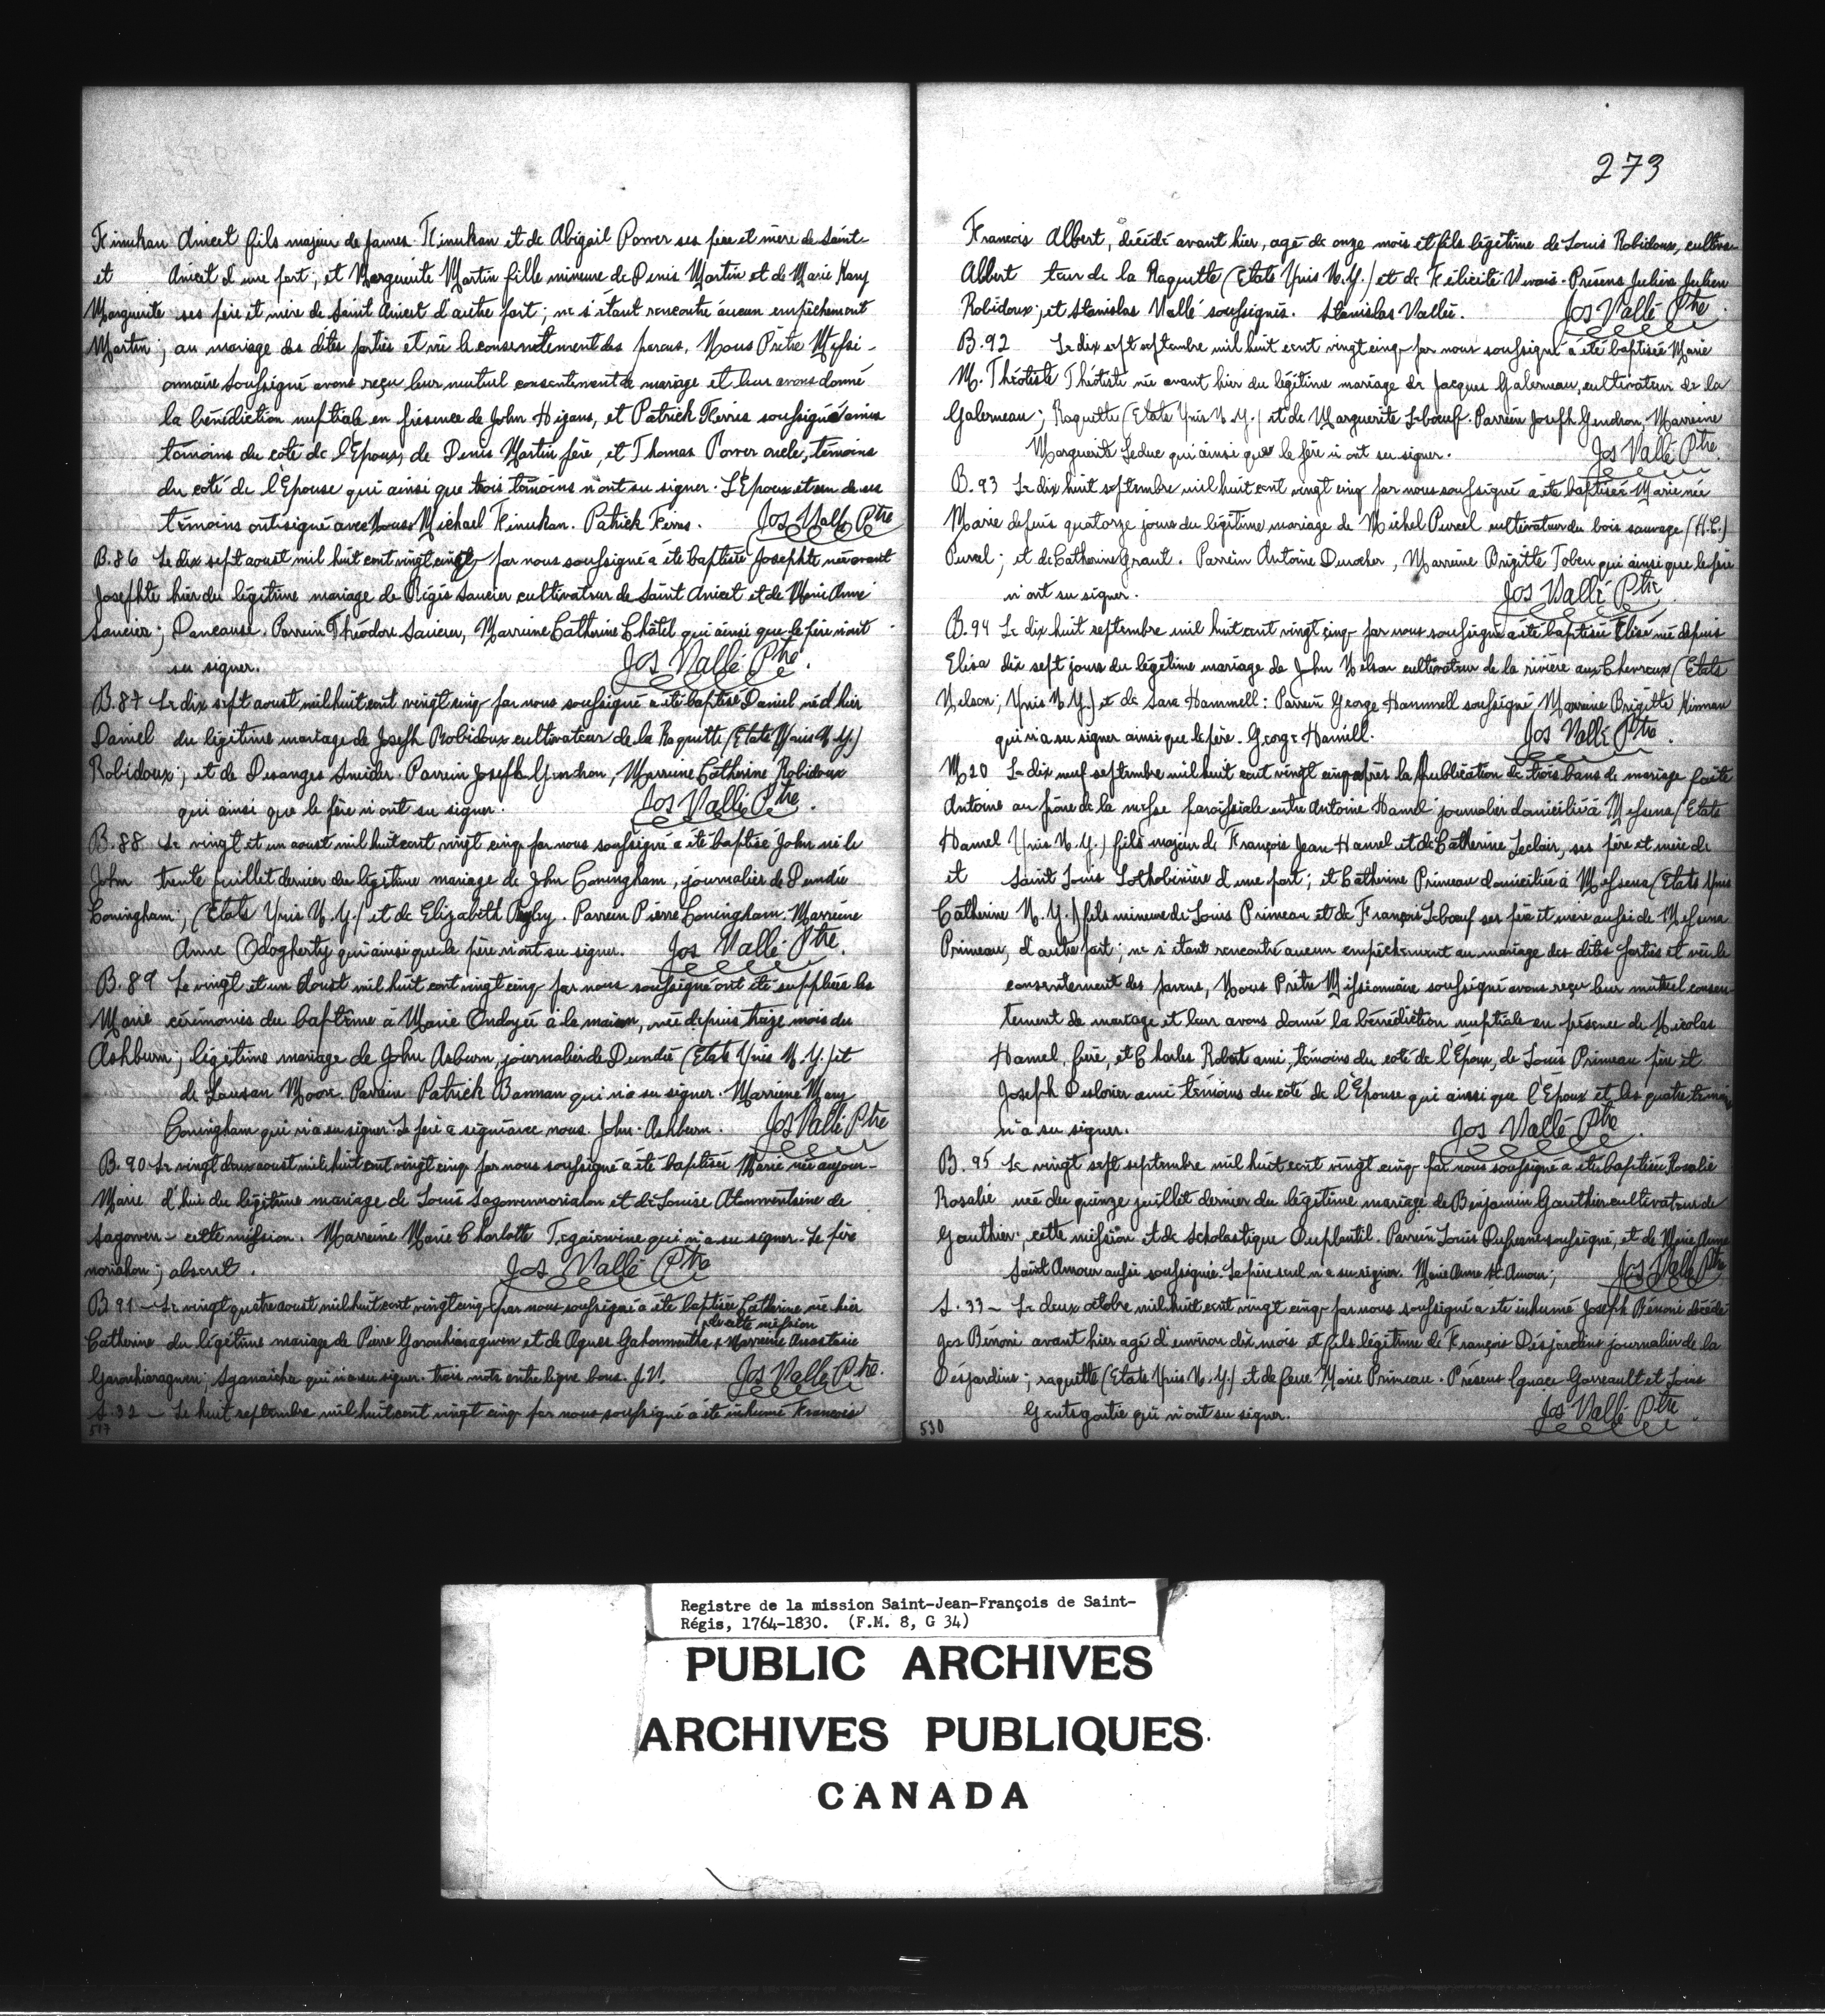 Kinukan Anicet fils majeur de James Kinukan et de Abigail Power ses père et mère de Saint
et Anicet d'une part; et Marguerite Martin fille mineure de Denis Martin et de Marie Kary
Marguerite ses père et mère de Saint Anicet d'autre part; ne s'étant rencontré aucun empêchement
Martin; au mariage des dites parties et vû le consentement des parens, Nous Prêtre Missi-
onnaire soussigné avons reçu leur mutuel consentement de mariage et leur avons donné
la bénédiction nuptiale en présence de John Higans, et Patrick Kerris soussigné amis
témoins du coté de l'Epoux, de Denis Martin père, et Thomas Power oncle, témoins
du coté de l'Epouse qui ainsi que trois témoins n'ont su signer. L'Epoux et un de ses
témoins ont signé avec Nous Michael Kinukan. Patrick Kerris. Jos Vallé Ptre
B. 86 Le dix sept aoust mil huit cent vingt cinq par nous soussigné a été baptisée Josephte née avant
Josephte hier du légitime mariage de Régis Saucier cultivateur de Saint Anicet et de Marie Anne
Saucier; Dancause. Parrein Théodore Saucier, Marreine Catherine Châtel qui ainsi que le père n'ont
su signer. Jos Vallé Ptre.
B. 87 Le dix sept aoust mil huit cent vingt cinq par nous soussigné a été baptisé Daniel né d'hier
Daniel du légitime mariage de Joseph Robidoux cultivateur de la Raquette (Etats Unis N.Y.)
Robidoux; et de Desanges Sneider. Parrein Joseph Gendron, Marreine Catherine Robidoux
qui ainsi que le père n'ont su signer. Jos Vallé Ptre.
B. 88 Le vingt et un aoust mil huit cent vingt cinq par nous soussigné a été baptisé John né le
John trente juillet dernier du légitime mariage de John Coningham, journalier de Dundée
Coningham; (Etats Unis N.Y.) et de Elizabeth . Parrein Pierre Coningham. Marreine
Anne Odogherty qui ainsi que le père n'ont su signer. Jos Vallé Ptre.
B. 89 Le vingt et un Aoust mil huit cent vingt cinq par nous soussigné ont été suppliées les
Marie cérémonies du baptême à Marie Ondoyée à la maison, née depuis treize mois du
Ashburn; légitime mariage de John Asburn, journalier de Dundée (Etats Unis N.Y.) et
de Sausan Moore. Parrein Patrick Bannan qui n'a su signer. Marreine Mary
Coningham qui n'a su signer. Le père a signé avec nous. John Ashburn. Jos Vallé Ptre
B. 90 Le vingt deux aoust mil huit cent vingt cinq par nous soussigné a été baptisée Marie née aujour-
Marie d'hui du légitime mariage de Louis Sagowennoriahon et de Louise Atonwentsine de
Sagowen- cette mission. Marreine Marie Charlotte Tegaienwine qui n'a su signer. Le père
noriahon; absent. Jos Vallé Ptre
B 91 - Le vingt quatre aoust mil huit cent vingt cinq par nous soussigné a été baptisée Catherine née hier
de cette mission
Catherine du légitime mariage de Pierre Garonhiaraguen et de Agnes Gahonwentha x Marreine Anastasie
Garonhiaraguen; Sganaicha qui n'a su signer. trois mots entre ligne bons. J.V. Jos Vallé Ptre.
S. 32 - Le huit septembre mil huit cent vingt cinq par nous soussigné a été inhumé Francois
273
Francois Albert, décédé avant hier, agé de onze mois et fils légitime de Louis Robidoux, cultiva-
Albert teur de la Raquette (Etats Unis N.Y.) et de Félicité Vivais. Présens Juliere Julien
Robidoux; et Stanislas Vallé soussignés. Stanislas Vallée. Jos Vallé Ptre.
B. 92 Le dix sept septembre mil huit cent vingt cinq par nous soussigné a été baptisée Marie
M. Théotiste Théotiste née avant hier du légitime mariage de Jacques Galerneau, cultivateur de la
Galerneau; Raquette (Etats Unis N.Y.) et de Marguerite Leboeuf. Parrein Joseph Gendron, Marreine
Marguerite Leduc qui ainsi que le père n'ont su signer. Jos Vallé Ptre.
B. 93 Le dix huit septembre mil huit cent vingt cinq par nous soussigné a été baptisée Marie née
Marie depuis quatorze jours du légitime mariage de Michel Purcel cultivateur du bois sauvage (H.C.)
Purcel; et de Catherine Graut. Parrein Antoine Durocher, Marreine Brigitte Toben qui ainsi que le père
n'ont su signer. Jos Vallé Ptre.
B. 94 Le dix huit septembre mil huit cent vingt cinq par nous soussigné a été baptisée Elise née depuis
Elisa dix sept jours du légitime mariage de John Nelson cultivateur de la rivière aux Chevreux (Etats
Nelson; Unis N.Y.) et de Sara Hammell: Parrein George Hammell soussigné Marreine Brigitte Kinnan
qui n'a su signer ainsi que le père. George Hamill. Jos Vallé Ptre.
M20 Le dix neuf septembre mil huit cent vingt cinq après la publication de trois bans de mariage faite
Antoine au prône de la messe paroissiale entre Antoine Hamel journalier domicilié à Messena (Etats
Hamel Unis N.Y.) fils majeur de François Jean Hamel et de Catherine Leclair, ses père et mère de
et Saint Louis Lothobinière d'une part; et Catherine Primeau domiciliée à Messena (Etats Unis
Catherine N.Y.) fils mineure de Louis Primeau et de François Leboeuf ses père et mère aussi de Messena
Primeau, d'autre part; ne s'étant rencontré aucun empêchement au mariage des dites parties et vû le
consentement des parens, Nous Prêtre Missionnaire soussigné avons reçu leur mutuel consen-
tement de mariage et leur avons donné la bénédiction nuptiale en présence de Nicolas
Hamel, frère, et Charles Robert ami, témoins du coté de l'Epoux, de Louis Primeau père et
Joseph Deslorier ami témoins du côté de l'Epouse qui ainsi que l'Epoux et les quatre témoins
n'a su signer. Jos Vallé Ptre.
B. 95 Le vingt sept septembre mil huit cent vingt cinq par nous soussigné a été baptisée Rosalie
Rosalie née du quinze juillet dernier du légitime mariage de Benjamin Gauthier cultivateur de
Gauthier; cette mission et de Scholastique Duplantil. Parrein Louis Dufresne soussigné, et de Marie Anne
Saint Amour aussi soussignée. Le père seul n'a su signer. Marie Anne St. Amour; Jos Vallé Ptre
S. 33 - Le deux octobre mil huit cent vingt cinq par nous soussigné a été inhumé Joseph Bénoni décédé
Jos Bénoni avant hier agé d'environ dix mois et fils légitime de François Désjardins journalier de la
Désjardins; raquette (Etats Unis N.Y.) et de feue Marie Primeau. Présens Ignace Garreault et Louis
qui n'ont su signer. Jos Vallé Ptre.
530
Registre de la mission Saint-Jean-François de Saint-
Régis, 1764-1830. (F.M. 8, G 34)
PUBLIC ARCHIVES
ARCHIVES PUBLIQUES
CANADA